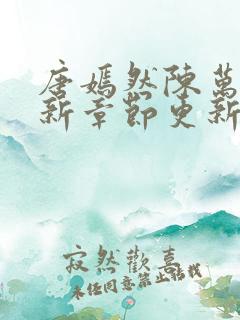 唐嫣然陳萬
新章節更新
寂然歡喜
未经同意禁止搭我